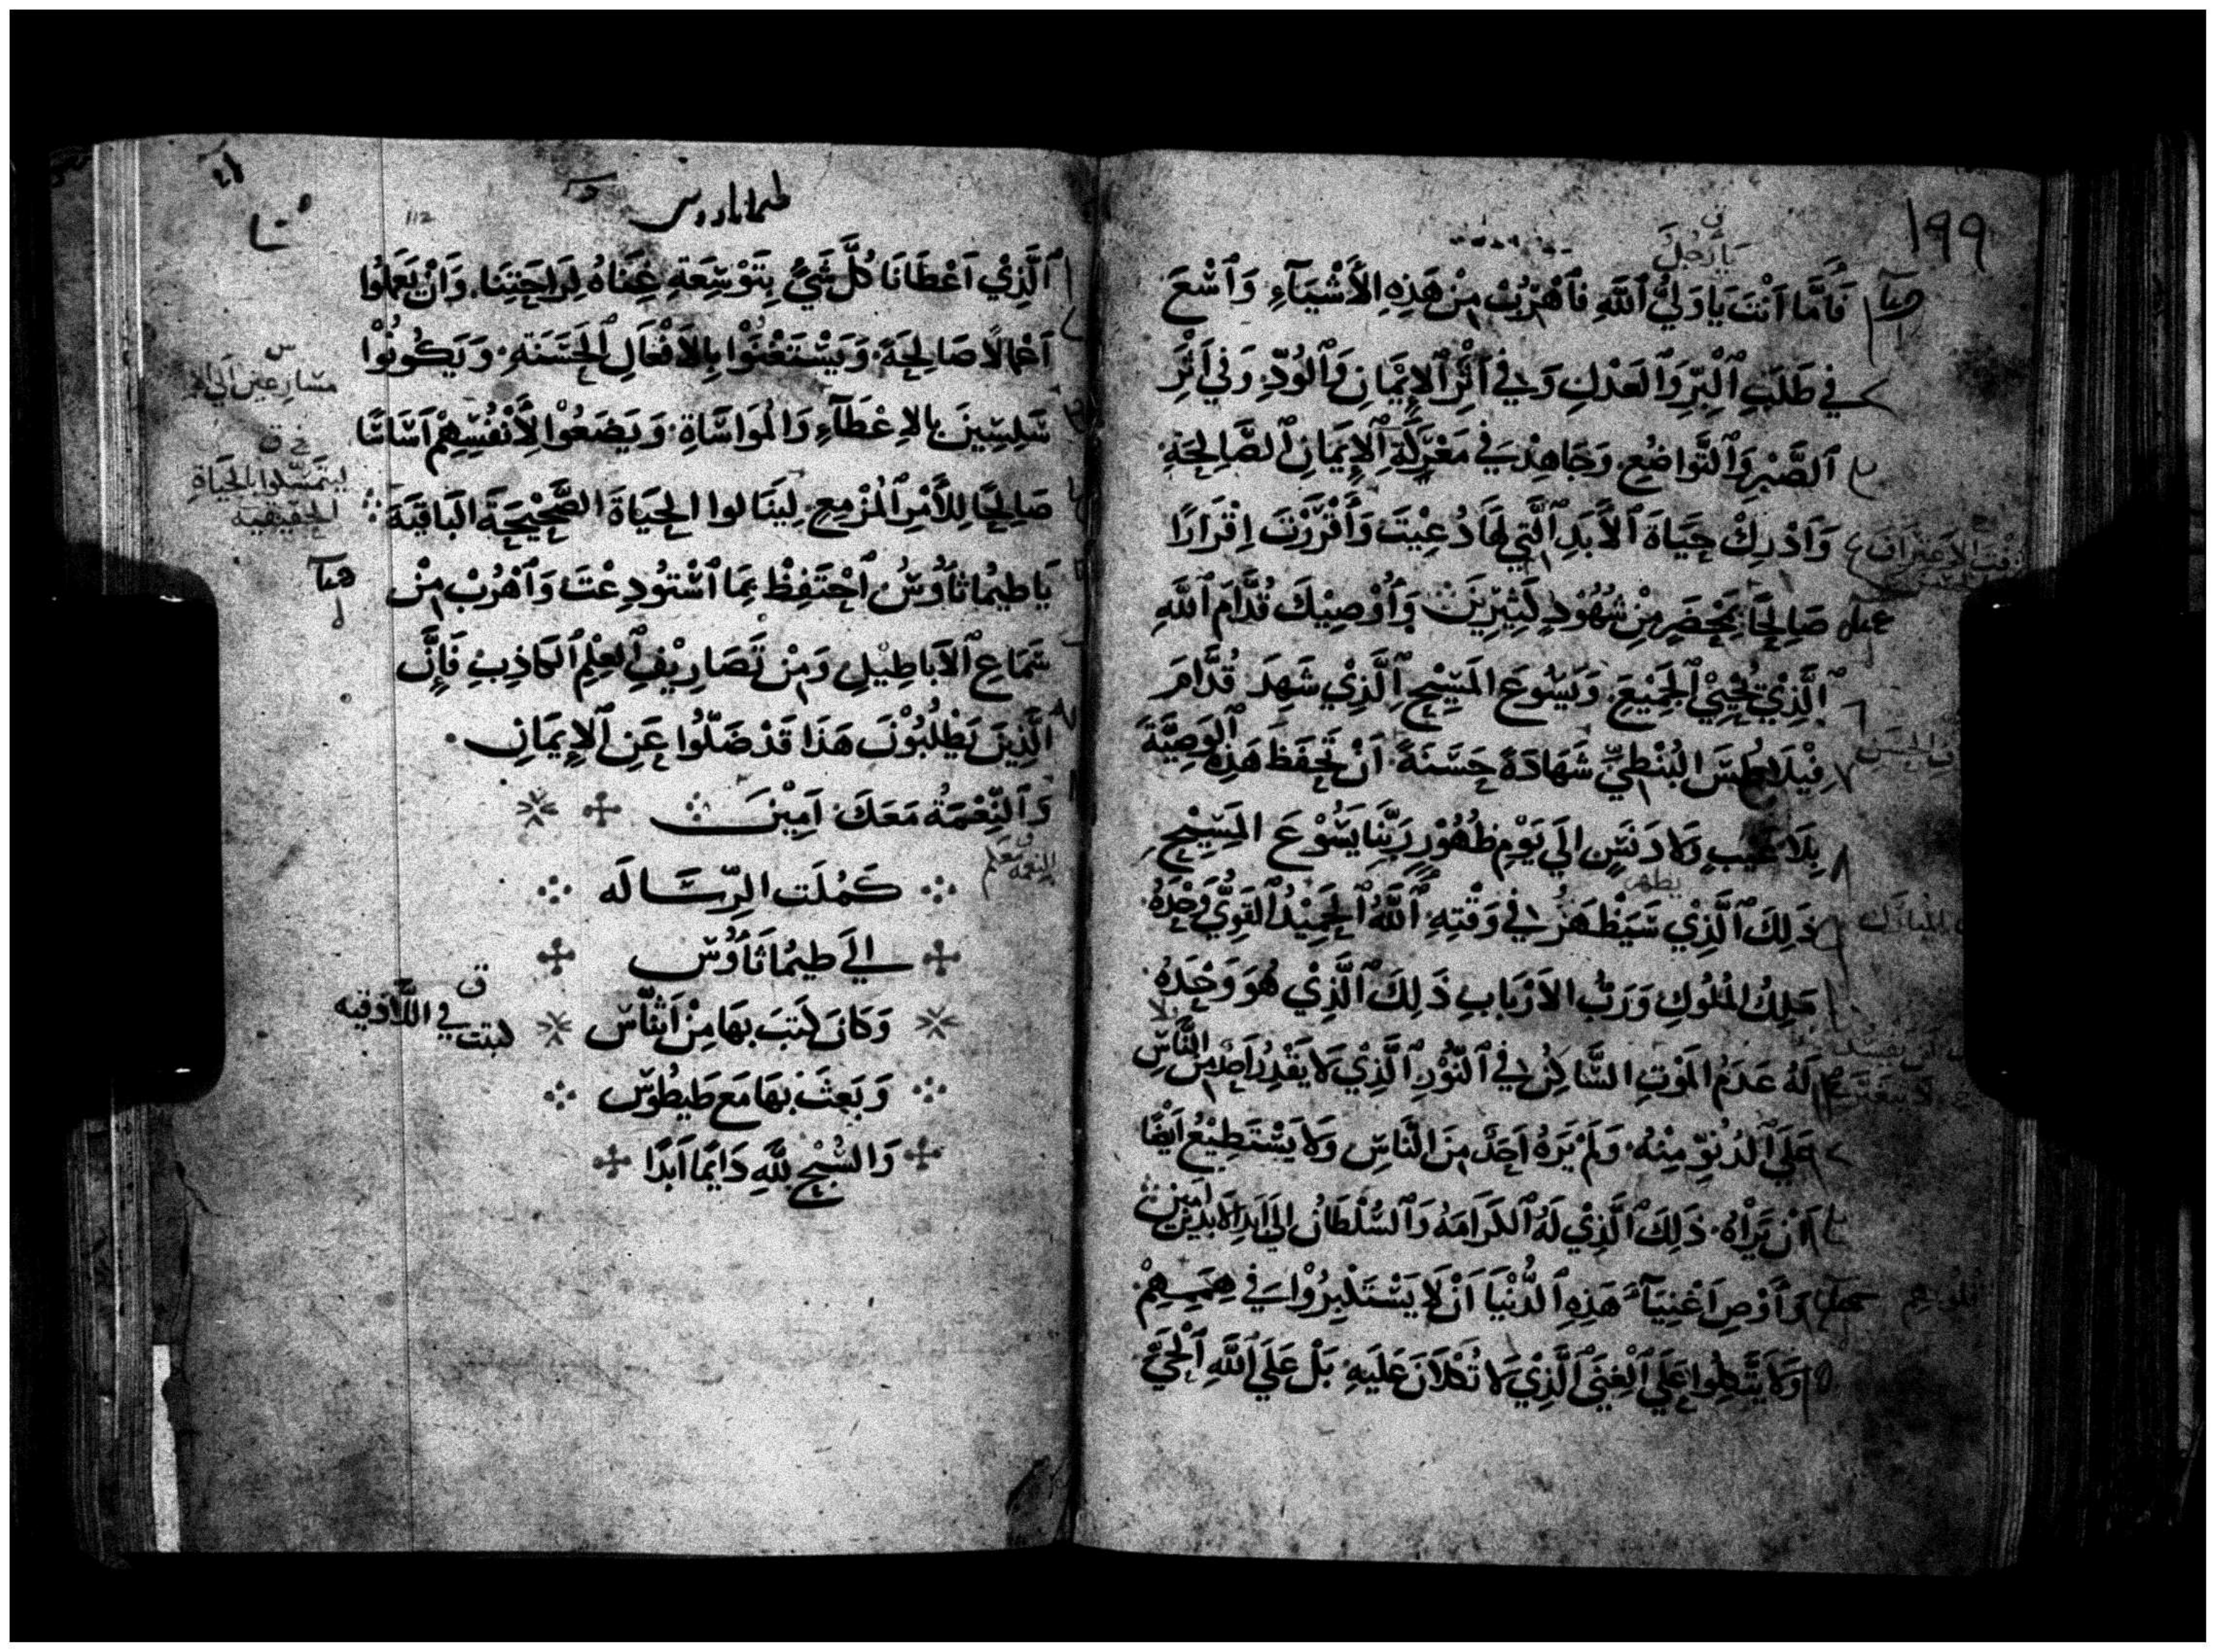 ١٩٩
يَا رَجُلَ
فَأَمَّا اَنْتَ يَا وَلِيَّ ٱللَّهِ فَٱهْرُبْ مِنْ هَذِهِ الأَشْيَآءِ وَٱسْعَ
فِي طَلَبِ ٱلْبِرِّ وَٱلعَدْلِ وَفِي اَثَرِ ٱلإِيْمَانِ وَٱلوُدِّ وَفِي اَثَرِ
ٱلصَّبْرِ وَٱلتَّوَاضُعِ. وَجَاهِدْ فِي مَعْرَكَةِ ٱلإِيمَانِ ٱلصَّالِحَةِ
وَٱدْرِكْ حَيَاةَ ٱلأَبَدِ ٱلَّتِي لَهَا دُعِيْتَ وَأَقْرَرْتَ اِقْرَارًا
صَالِحًا بِمَحْضَرٍ مِنْ شُهُوْدٍ كَثِيْرِيْنَ وَأُوْصِيْكَ قُدَّامَ ٱللَّهِ
ٱلَّذِيْ يُحْيِيْ ٱلجَمِيْعَ. وَيَسُوعَ المَسِيْحِ ٱلَّذِيْ شَهِدَ قُدَّامَ
فِيْلَاطُسَ البُنْطِيِّ شَهَادَةً حَسَنَةً اَنْ تَحْفَظَ هَذِهِ ٱلوَصِيَّةَ
بِلَا عَيْبٍ وَلَا دَنَسٍ اِلَي يَوْمِ ظُهُوْرِ رَبِّنَا يَسُوْعَ المَسِيْحِ
يظهره
ذَلِكَ ٱلَّذِيْ سَيَظْهَرُ فِي وَقْتِهِ ٱللَّهُ ٱلحَمِيْدُ ٱلقَوِيُّ وَحْدَهُ
مَلِكُ المُلُوكِ وَرَبُّ الاَرْبَابِ ذَلِكَ ٱلَّذِيْ هُوَ وَحْدَهُ
لَهُ عَدَمُ المَوْتِ السَّاكِنُ فِي ٱلنُّوْرِ ٱلَّذِيْ لَا يَقْدِرُ اَحَدٌ مِنَ النَّاسِ
عَلَي ٱلدُنُوِّ مِنْهُ. وَلَمْ يَرَهُ اَحَدٌ مِنَ النَّاسِ وَلَا يَسْتَطِيْعُ اَيْضًا
اَنْ يَرَاهُ. ذَلِكَ ٱلَّذِيْ لَهُ ٱلكَرَامَةُ وَٱلسُّلْطَانُ اِلَي اَبَدِ ٱلاَبَدِيْنَ اَمِيْنَ
وَأَوْصِ اَغْنِيَآءَ هَذِهِ ٱلدُّنْيَا اَنْ لَا يَسْتَكْبِرُوْا فِي هِمَمِهِمْ
وَلَا يَتَّكِلُوا عَلَي ٱلْغِنَي ٱلَّذِيْ لَا تُكْلَانَ عَلَيهِ. بَلْ عَلَي ٱللَّهِ ٱلْحَيِّ
طيماثاوس
112
ٱلَّذِيْ اَعْطَانَا كُلَّ شَيْءٍ بِتَوْسِعَةِ غِنَاهُ لِرَاحَتِنَا. وَاَنْ يَعْمَلُوا
اَعْمَالًا صَالِحَةً. وَيَسْتَغْنُوْا بِالاَفْعَالِ ٱلحَسَنَةِ. وَيَكُونُوْا
سَلِسِيْنَ بالاِعْطَآءِ وَالمُوَاسَاةِ. وَيَضَعُوْا لِأَنْفُسِهِمْ اَسَاسًا
صَالِحًا لِلأَمْرِ ٱلمُزْمِعِ. لِيَنَالوا الحَيَاةَ الصَّحِيْحَةَ البَاقِيَةَ
يَا طِيْمَاثَاوُسُ ٱحْتَفِظْ بِمَا ٱسْتُودِعْتَ وَٱهْرُبْ مِنْ
سَمَاعِ ٱلاَبَاطِيْلِ وَمِنْ تَصَارِيْفِ ٱلعِلْمِ ٱلكَاذِبِ فَإِنَّ
الَّذِيْنَ يَطْلُبُوْنَ هَذَا قَدْ ضَلُّوا عَنِ ٱلإِيمَانِ.
وَٱلنِّعْمَةُ مَعَكَ. اَمِيْنَ
كَمُلَت الرِّسَالَه
اِلَي طيمُاثَاوُس
وَكَانَ كَتَبَ بِهَا مِنْ اَثِنَاسْ
وَبَعَثَ بِهَا مَع طَيطُوسْ
وَالسُّبْحُ لِلَّهِ دَايمًا اَبَدًا
ليتمسّكوا بالحَيَاةِ
الحَقِيقِيَه
كتبت فِي اللَّاذقيه